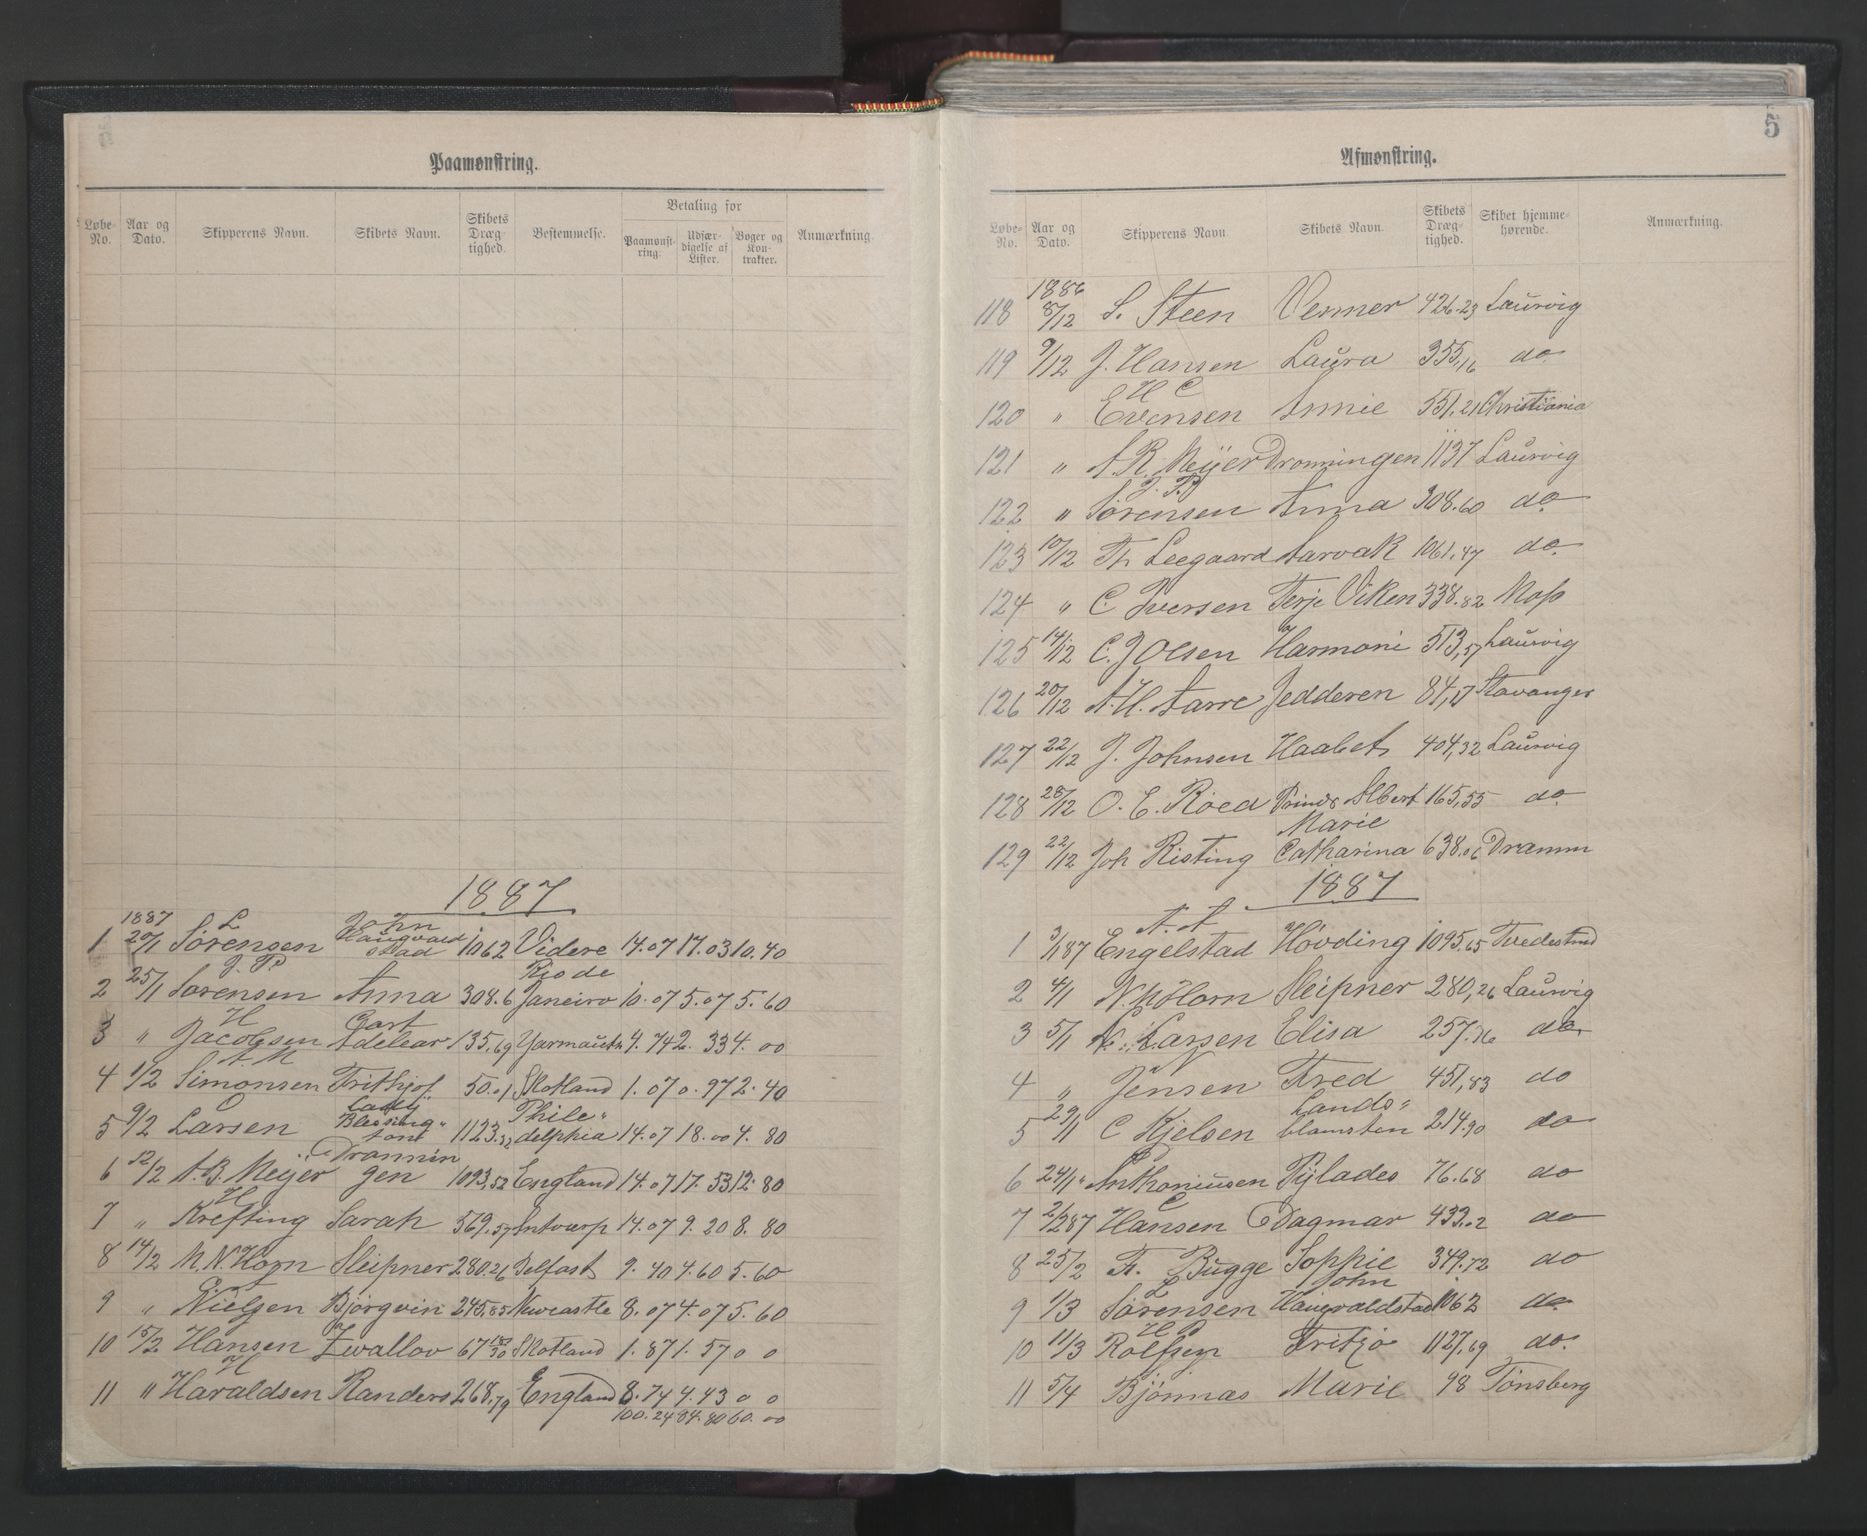 Paamønstring.
Løbe-No. Aar og Dato. Skipperens Navn. Skibets Navn. Skibets Dræg-tighed. Bestemmelse. Betaling for Paamønst-ring. Udfær-digelse af Lister. Bøger og Kon-trakter. Anmærkning.
1887
1887 L John
1 20/1 Sørensen Haugvald stad 1062 Videre 14.07 17.03 10.40
J. P. Rio de
2 25/1 Sørensen Anna 308.6 Janeiro 10.07 5.07 5.60
H Cort
3 " Jacobsen Adelear 135,69 Yarmouth 4.74 2.33 4.00
A. M
4 1/2 Simonsen Frithjof 50.01 Skotland 1.07 0.97 2.40
O Lady Phile-
5 9/2 Larsen Blessing-tom 1123.32 delphia 14.07 18.00 4.80
Dronnin
6 12/2 A.B. Meijer gen 1093,52 England 14.07 17.53 12.80
H
7 " Krefting Sarah 569.57 Antverp 14.07 9.20 8.80
8 14/2 M. N. Horn Sleipner 280.26 Belfast 9.40 4.60 5.60
9 " Nielsen Bjørgvin 245.85 Newcastle 8.07 4.07 5.60
10 15/2 Hansen Zwallov 67 Skotland 1.87 1.57 0 0
H
11 " Haraldsen Randers 268,79 England 8.74 4.43 0 0
100.24 84.80 60.00
5
Afmønstring.
Løbe-No. Aar og Dato. Skipperens Navn. Skibets Navn. Skibets Dræg-tighed. Skibet hjemme-hørende. Anmærkning.
1886
118 8/12 S. Steen Venner 426.23 Laurvig
119 9/12 J. Hansen Laura 355,16 do
H C
120 " Evensen Annie 551.21 Christiania
121 " A R Meijer Dronningen 1137 Laurvig
J. P.
122 " Sørensen Anna 308.60 do
123 10/12 Th Leegaard Aarvak 1061.47 do
124 " C. Iversen Terje Viken 338.82 Moss
125 14/12 C. J Olsen Harmoni 513,57 Laurvig
126 20/12 A. H. Aarre Jedderen 84,17 Stavanger
127 22/12 J. Johnsen Haabet 404,32 Laurvig
128 28/12 O. E. Röed Prinds Albert 165,55 do
Marie
129 22/12 Joh Risting Catharina 638.06 Dramm
1887
A. A
1 3/1 87 Engelstad Hövding 1095.65 Tvedestrnd
2 4/1 N. M Horn Sleipner 280,26 Laurvig
3 5/1 Larsen Elisa 257.76 do
4 " Jensen Fred 451,83 do
Lands-
5 29/1 C Kjelsen blomsten 214.90 do
6 24/1 " Anthoniusen Pylades 76.68 do
C
7 2/2 87 Hansen Dagmar 433.02 do
8 25/2 Fr. Bugge Soppie 349.72 do
L John
9 1/3 Sørensen Haugvaldstad 1062 do
H P
10 11/3 Rolfsen Fritzö 1127.69 do.
11 5/4 Bjönnas Marie 98 Tönsberg